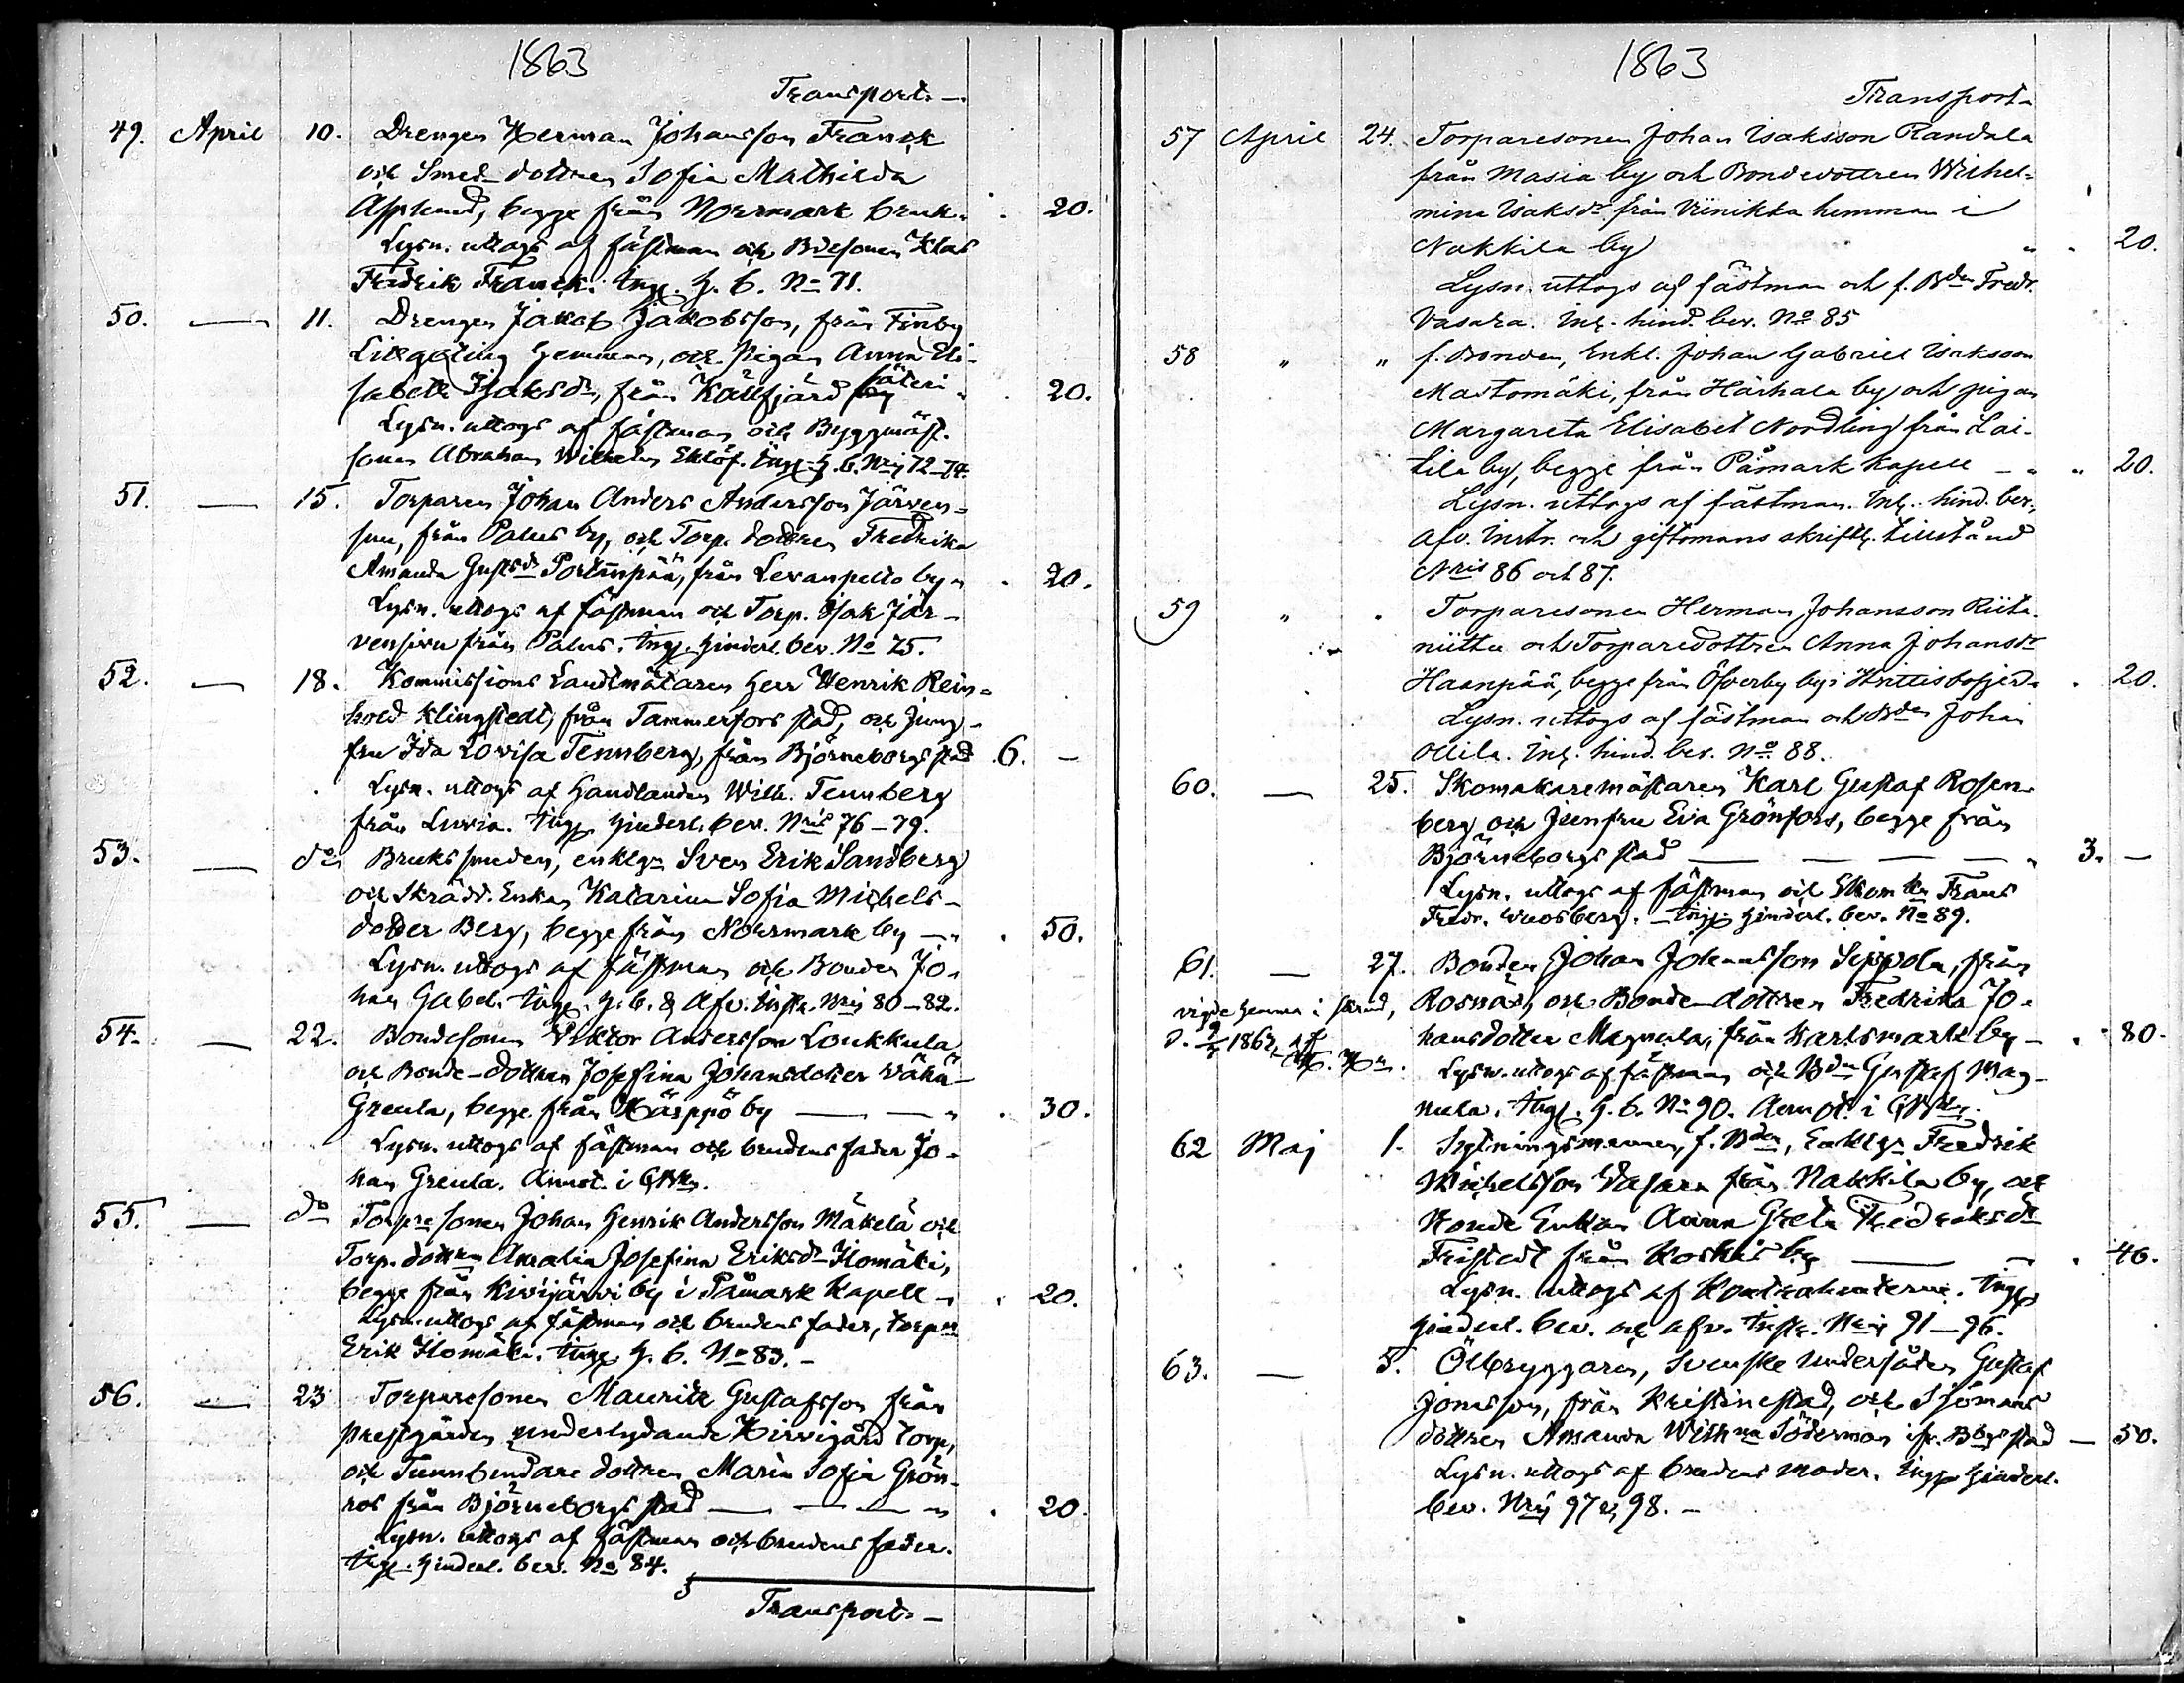 1863
Transport. —
49. April 10. Drengen Herman Johansson Franck
och Smed-dottren Sofia Mathilda
Applund, begge från Norrmark bruk. . 20.
Lysn. uttogs af fästman och Bdesonen Klas
Fredrik Franck. Ingf. h. b. No 71.
50. — 11. Drengen Jakob Jakobsson, från Finby
Lillgäling hemman, och Pigan Anna Eli-
sabeth Isaksdr, från Källfjärd säteri . 20.
Lysn. uttogs af fästman och Byggmäst.
sonen Abraham Wilhelm Eklöf. Ingf. h. b. Nris 72–74.
51. — 15. Torparen Johan Anders Andersson Järven-
suu, från Palus by, och Torp. dottren Fredrika
Amanda Gustsdr Portinpää, från Levanpelto by . 20.
Lysn. uttogs af fästman och Torp. Isak Jär-
vensivu från Palus. Ingf. hinderl. bev. No 75.
52. — 18. Kommissions Landtmätaren Herr Henrik Rein-
hold Klingstedt, från Tammerfors stad, och Jung-
fru Ida Lovisa Tennberg, från Björneborgs stad 6. —
Lysn. uttogs af Handlanden Wilh. Tennberg
från Luvia. Ingf. hinderl. bev. Nris 76–79.
53. — do Brukssmeden, enklgn Sven Erik Sandberg
och Skrädd. Enkan Katarina Sofia Michels-
dotter Berg, begge från Norrmark by — . 50.
Lysn. uttogs af fästman och Bonden Jo-
han Gabel. Ingf. h. b. & Afv. Instr. Nris 80–82.
54. — 22. Bondesonen Viktor Andersson Loukkula
och Bonde-dottren Josefina Johansdotter Vähä-
Greula, begge från Kärppö by — — . 30.
Lysn. uttogs af fästman och brudens fader Jo-
han Greula. Annot. i
55. — do Torpresonen Johan Henrik Andersson Mäkelä och
Torp. dottren Amalia Josefina Eriksdr Ilomäki,
begge från Kivijärvi by i Påmark Kapell — . 20.
Lysn. uttogs af fästman och brudens fader, torpn
Erik Ilomäki. Ingf. h. b. No 83. —
56. — 23 Torparesonen Maurits Gustafsson från
prestgården underlydande Hirvigård torp,
och Tunnbindare dottren Maria Sofia Grön-
ros från Björneborgs stad — — — . 20.
Lysn. uttogs af fästman och brudens fader.
Ingf. hinderl. bev. No 84.
Transport. —
1863
Transport.
57 April 24. Torparesonen Johan Isaksson Randala
från Masia by och Bondedottren Wilhel-
mina Isaksdr från Viinikka hemman i
Nakkila by " . 20.
Lysn. uttogs af fästman och f. Bden Fredr.
Vasara. Inl. hind. bev. No 85
58 " " f. Bonden, Enkl. Johan Gabriel Isaksson
Mastomäki, från Härhala by och pigan
Margareta Elisabet Nordling från Lai-
tila by, begge från Påmark kapell — " " 20.
Lysn. uttogs af fästman. Inl. hind. bev.,
Afv. Instr. och giftomans skriftl. tillstånd
Nris 86 och 87.
59 " . Torparesonen Herman Johansson Riita-
niittu och Torparedottren Anna Johansdr
Haanpää, begge från Öfverby by i Hvittisbofjerd . 20.
Lysn. uttogs af fästman och Bden Johan
Ollila. Inl. hind. bev. No 88.
60. — 25. Skomakaremästaren Karl Gustaf Rosen-
berg och Jumfru Eva Grönfors, begge från
Björneborgs stad — — — — " 3. —
Lysn. uttogs af fästman och Skom. Frans
Fredr. . — Ingf. hinderl. bev. No 89.
61. — 27. Bonden Johan Johansson Sippola, från
vigde hemma i Rosnäs, och Bonde-dottren Fredrika Jo-
d. 1862 af hansdotter Magnula, från Karlsmark by — . 80.
Lysn. uttogs af fästman och Bden Gustaf Mag-
nula. Ingf. h. b. No 90. Annot. i
62 Maj 1. Sytningsmannen, f. Bden, Enklgn Fredrik
Michelsson Vasara från Nakkila by, och
Bonde Enkan Anna Greta Fredriksdr
Fristedt från Koskis by — — . 40.
Lysn. uttogs af Kontrahenterne. Ingf.
hinderl. bev. och afv. Instr. Nris 91–96.
63. — 5. Ölbryggaren, Svenske Undersåten Gustaf
Jonasson, från Kristinestad, och Sjömans
dottren Amanda Wilhna Söderman ifr. Bbgs stad — 50.
Lysn. uttogs af brudens moder. Ingf. hinderl.
bev. Nris 97 & 98. —